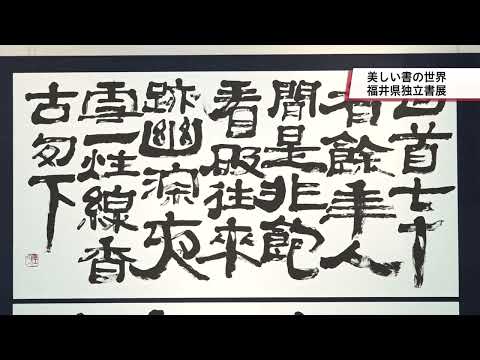 美しい書の世界
福井県独立書展
回首七十
有餘年人
間是非飽
看破往來
跡幽深夜
雪一炷線香
古匆下